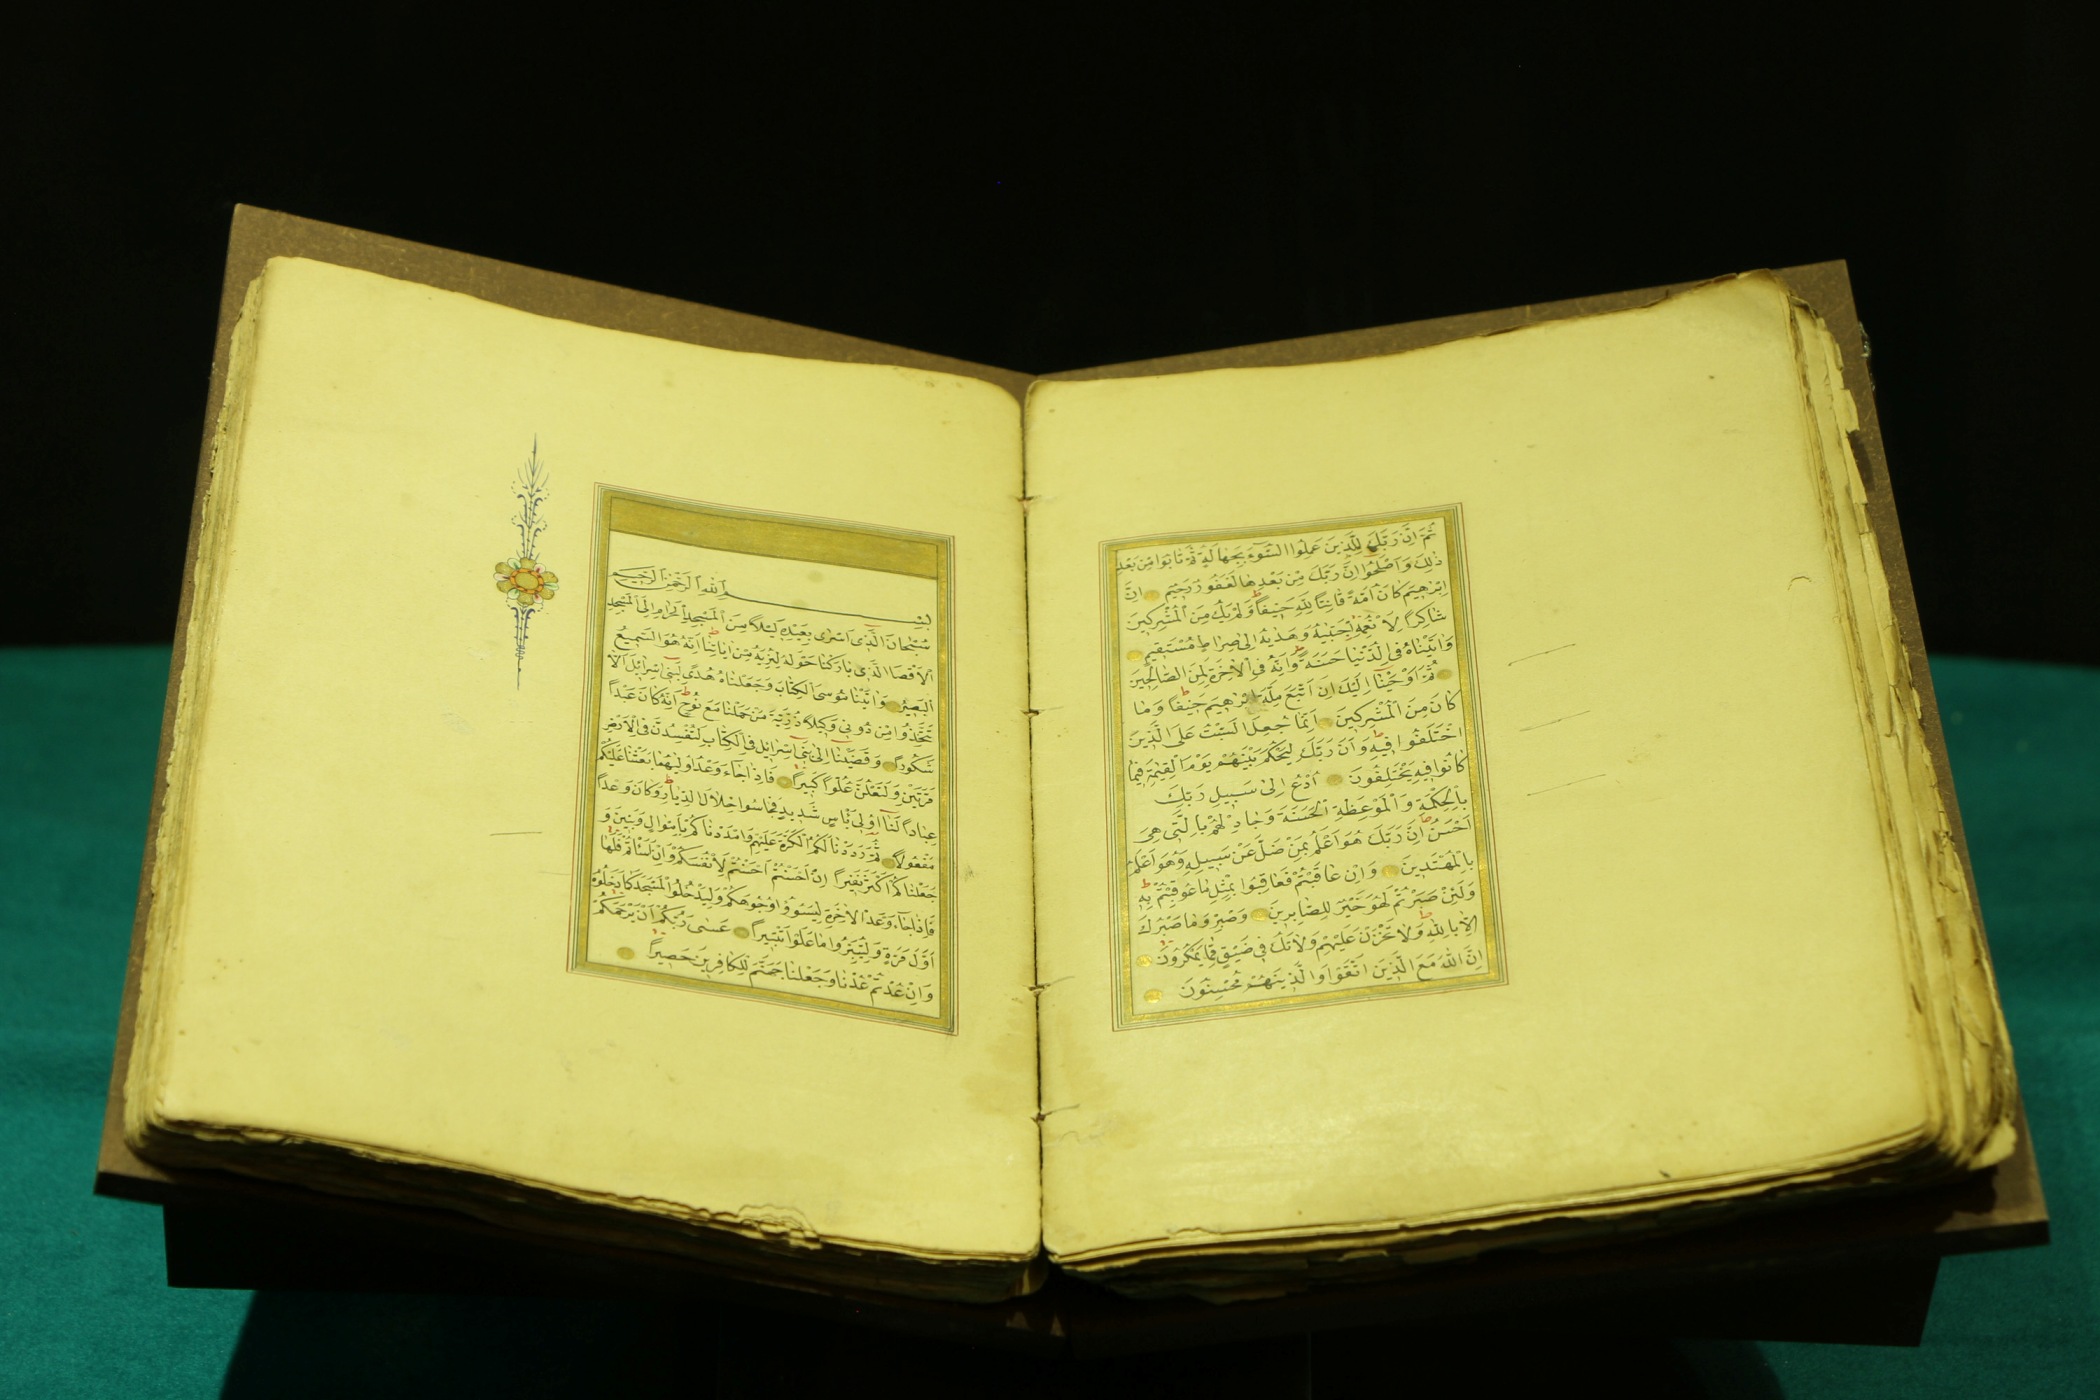 ثُمَّ اِنَّ رَبَّكَ لِلَّذِينَ عَمِلُوا السُّوٓءَ بِجَهَالَةٍ ثُمَّ تَابُوا مِنْ بَعْدِ
ذٰلِكَ وَاَصْلَحُوا اِنَّ رَبَّكَ مِنْ بَعْدِهَا لَغَفُورٌ رَحِيمٌ اِنَّ
اِبْرٰهِيمَ كَانَ اُمَّةً قَانِتًا لِلّٰهِ حَنِيفًا وَلَمْ يَكُ مِنَ الْمُشْرِكِينَ
شَاكِرًا لِاَنْعُمِهِ اِجْتَبٰيهُ وَهَدٰيهُ اِلٰى صِرَاطٍ مُسْتَقِيمٍ
وَاٰتَيْنَاهُ فِي الدُّنْيَا حَسَنَةً وَاِنَّهُ فِي الْاٰخِرَةِ لَمِنَ الصَّالِحِينَ
ثُمَّ اَوْحَيْنَٓا اِلَيْكَ اَنِ اتَّبِعْ مِلَّةَ اِبْرٰهِيمَ حَنِيفًا وَمَا
كَانَ مِنَ الْمُشْرِكِينَ اِنَّمَا جُعِلَ السَّبْتُ عَلَى الَّذِينَ
اخْتَلَفُوا فِيهِ وَاِنَّ رَبَّكَ لَيَحْكُمُ بَيْنَهُمْ يَوْمَ الْقِيٰمَةِ فِيمَا
كَانُوا فِيهِ يَخْتَلِفُونَ اُدْعُ اِلٰى سَبِيلِ رَبِّكَ
بِالْحِكْمَةِ وَالْمَوْعِظَةِ الْحَسَنَةِ وَجَادِلْهُمْ بِالَّتِي هِيَ
اَحْسَنُ اِنَّ رَبَّكَ هُوَ اَعْلَمُ بِمَنْ ضَلَّ عَنْ سَبِيلِهِ وَهُوَ اَعْلَمُ
بِالْمُهْتَدِينَ وَاِنْ عَاقَبْتُمْ فَعَاقِبُوا بِمِثْلِ مَا عُوقِبْتُمْ بِهِ
وَلَئِنْ صَبَرْتُمْ لَهُوَ خَيْرٌ لِلصَّابِرِينَ وَاصْبِرْ وَمَا صَبْرُكَ
اِلَّا بِاللّٰهِ وَلَا تَحْزَنْ عَلَيْهِمْ وَلَا تَكُ فِي ضَيْقٍ مِمَّا يَمْكُرُونَ
اِنَّ اللّٰهَ مَعَ الَّذِينَ اتَّقَوْا وَالَّذِينَ هُمْ مُحْسِنُونَ
بِسْمِ اللّٰهِ الرَّحْمٰنِ الرَّحِيمِ
سُبْحَانَ الَّذِٓي اَسْرٰى بِعَبْدِهِ لَيْلًا مِنَ الْمَسْجِدِ الْحَرَامِ اِلَى الْمَسْجِدِ
الْاَقْصَا الَّذِي بَارَكْنَا حَوْلَهُ لِنُرِيَهُ مِنْ اٰيَاتِنَا اِنَّهُ هُوَ السَّمِيعُ
الْبَصِيرُ وَاٰتَيْنَا مُوسَى الْكِتَابَ وَجَعَلْنَاهُ هُدًى لِبَنِٓي اِسْرَائِلَ اَلَّا
تَتَّخِذُوا مِنْ دُونِي وَكِيلًا ذُرِّيَّةَ مَنْ حَمَلْنَا مَعَ نُوحٍ اِنَّهُ كَانَ عَبْدًا
شَكُورًا وَقَضَيْنَٓا اِلٰى بَنِٓي اِسْرَائِلَ فِي الْكِتَابِ لَتُفْسِدُنَّ فِي الْاَرْضِ
مَرَّتَيْنِ وَلَتَعْلُنَّ عُلُوًّا كَبِيرًا فَاِذَا جَٓاءَ وَعْدُ اُولٰيهُمَا بَعَثْنَا عَلَيْكُمْ
عِبَادًا لَنَٓا اُولِي بَأْسٍ شَدِيدٍ فَجَاسُوا خِلَالَ الدِّيَارِ وَكَانَ وَعْدًا
مَفْعُولًا ثُمَّ رَدَدْنَا لَكُمُ الْكَرَّةَ عَلَيْهِمْ وَاَمْدَدْنَاكُمْ بِاَمْوَالٍ وَبَنِينَ وَ
جَعَلْنَاكُمْ اَكْثَرَ نَفِيرًا اِنْ اَحْسَنْتُمْ اَحْسَنْتُمْ لِاَنْفُسِكُمْ وَاِنْ اَسَأْتُمْ فَلَهَا
فَاِذَا جَٓاءَ وَعْدُ الْاٰخِرَةِ لِيَسُوؤُا وُجُوهَكُمْ وَلِيَدْخُلُوا الْمَسْجِدَ كَمَا دَخَلُوهُ
اَوَّلَ مَرَّةٍ وَلِيُتَبِّرُوا مَا عَلَوْا تَتْبِيرًا عَسٰى رَبُّكُمْ اَنْ يَرْحَمَكُمْ
وَاِنْ عُدْتُمْ عُدْنَا وَجَعَلْنَا جَهَنَّمَ لِلْكَافِرِينَ حَصِيرًا